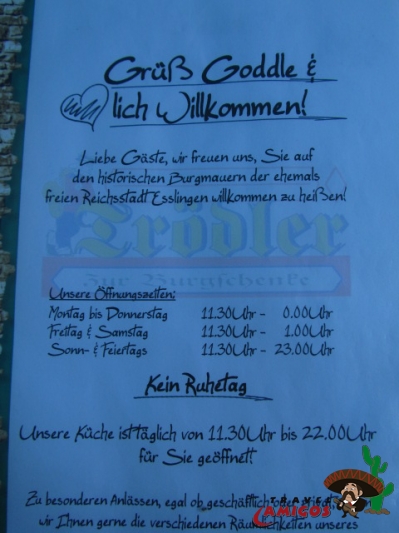 Grüß Goddle &
lich Willkommen!
Liebe Gäste, wir freuen uns, Sie auf
den historischen Burgmauern der ehemals
freien Reichsstadt Esslingen willkommen zu heißen!
Trödler
Zur Burgschenke
Unsere Öffnungszeiten:
Montag bis Donnerstag 11.30Uhr - 0.00Uhr
Freitag & Samstag 11.30Uhr - 1.00Uhr
Sonn- & Feiertags 11.30Uhr - 23.00Uhr
Kein Ruhetag
Unsere Küche ist täglich von 11.30Uhr bis 22.00Uhr
für Sie geöffnet!
Zu besonderen Anlässen, egal ob geschäftlich oder
wir Ihnen gerne die verschiedenen Räumlichkeiten unseres
TRAVEL
AMIGOS